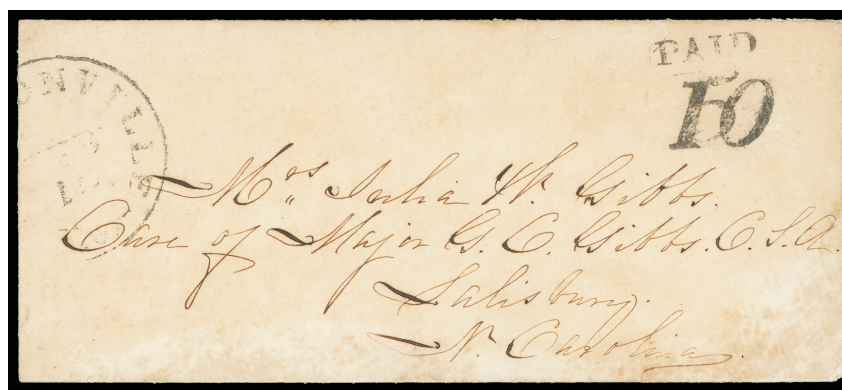 PAID
10
ONVILLE
Mrs Julia W. Gibbs.
Care of Major G. C. Gibbs. C. S. A.
Salisbury.
N. Carolina.